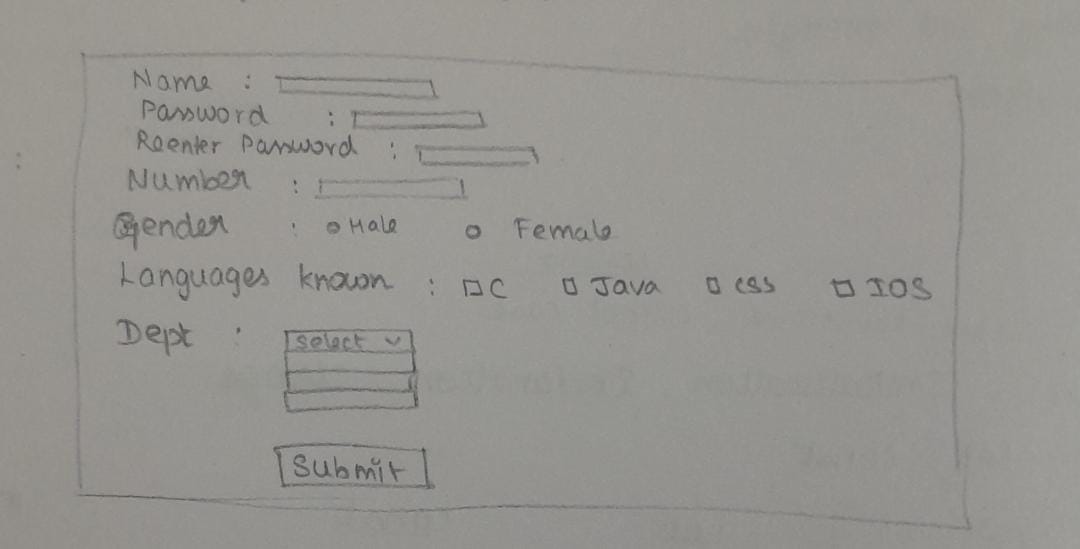 Name :
Password :
Reenter Password :
Number :
Gender : Male Female
Languages known : C Java CSS IOS
Dept :
select
Submit